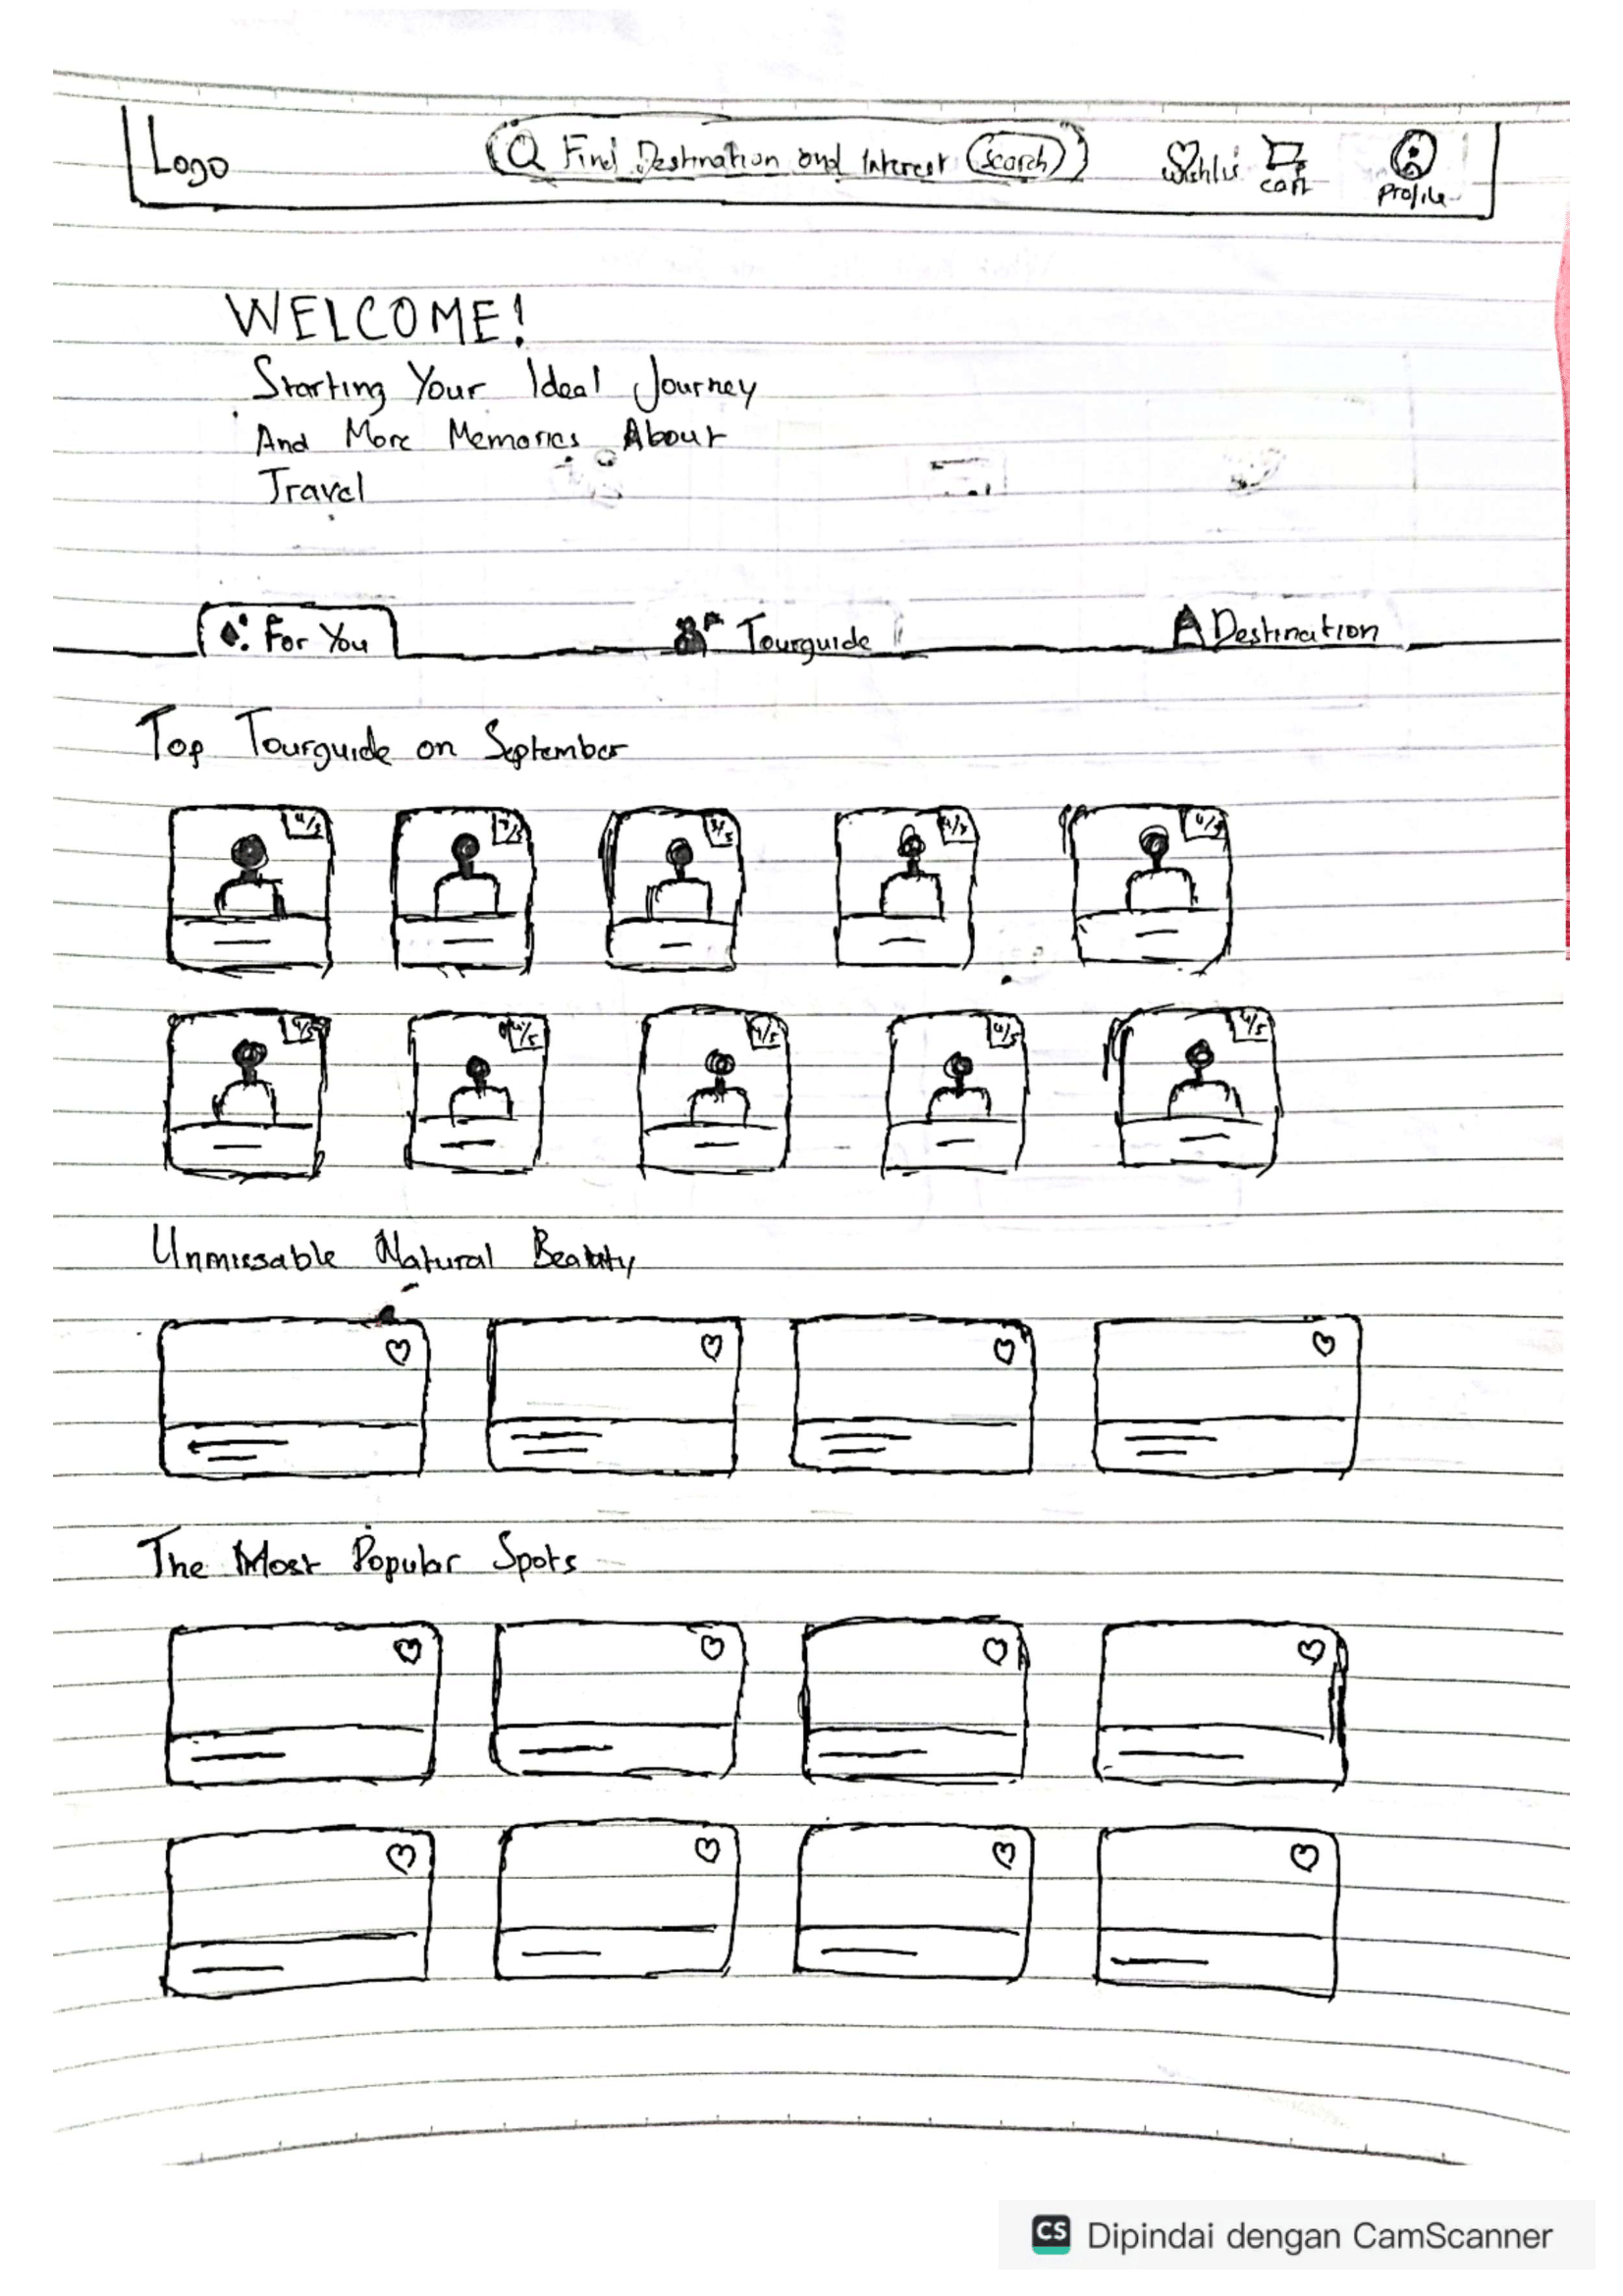 Logo
Find Destination and Interest Search
Wishlis
cart
Profile
WELCOME!
Starting Your Ideal Journey
And More Memories About
Travel
For You
Tourguide
Destination
Top Tourguide on September
4/5
3/5
4/5
4/5
4/5 4/5 4/5 4/5 4/5
Unmissable Natural Beauty
The Most Popular Spots
CS Dipindai dengan CamScanner